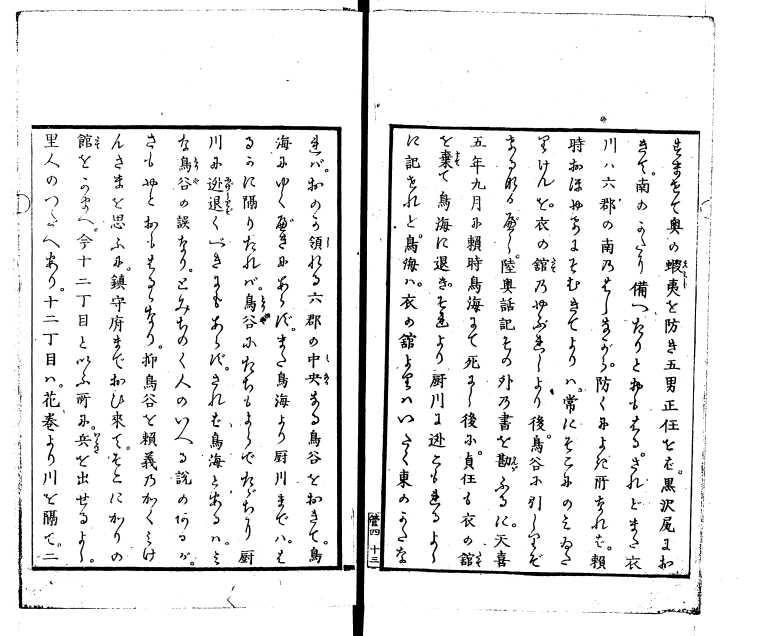 すまをして奥の蝦夷を防き五男正任をば。黒沢尻にお
きて。南のかたり備へたりとおもはる。されどまた衣
川ハ六郡の南乃はしながら。防くによき所なれば。頼
時おほやけにそむきてよりハ。常にそこにのミゐた
りけんを。衣の舘乃やぶれしより後。鳥谷に引しりぞ
きたるなるべし。陸奥話記その外乃書を勘ふるに。天喜
五年九月に頼時鳥海にて死にし後に。貞任も衣の舘
を棄て鳥海に退き。それより厨川に迯こもれるよし
に記されと。鳥海ハ。衣の舘よりハいさゝか東のかたな
管四 十三
れバ。おのが領れる六郡の中央なる鳥谷をおきて。鳥
海にゆくべきにあらず。また鳥海より厨川までハ。は
るかに隔りたれバ。鳥谷にたちもよらでたゞちに厨
川に迯退くべきにもあらず。されば鳥海とあるハ。ミ
な鳥谷の誤なり。とみちのく人のいへる説のあるが。
さもやとおもはるゝなり。抑鳥谷を頼義乃かくミけ
んさまを思ふに。鎮守府までおひ来て。そこにかりの
舘をかまへ。今十二丁目といふ所に。兵を出せるよし。
里人のつたへあり。十二丁目ハ。花巻より川を隔て。二